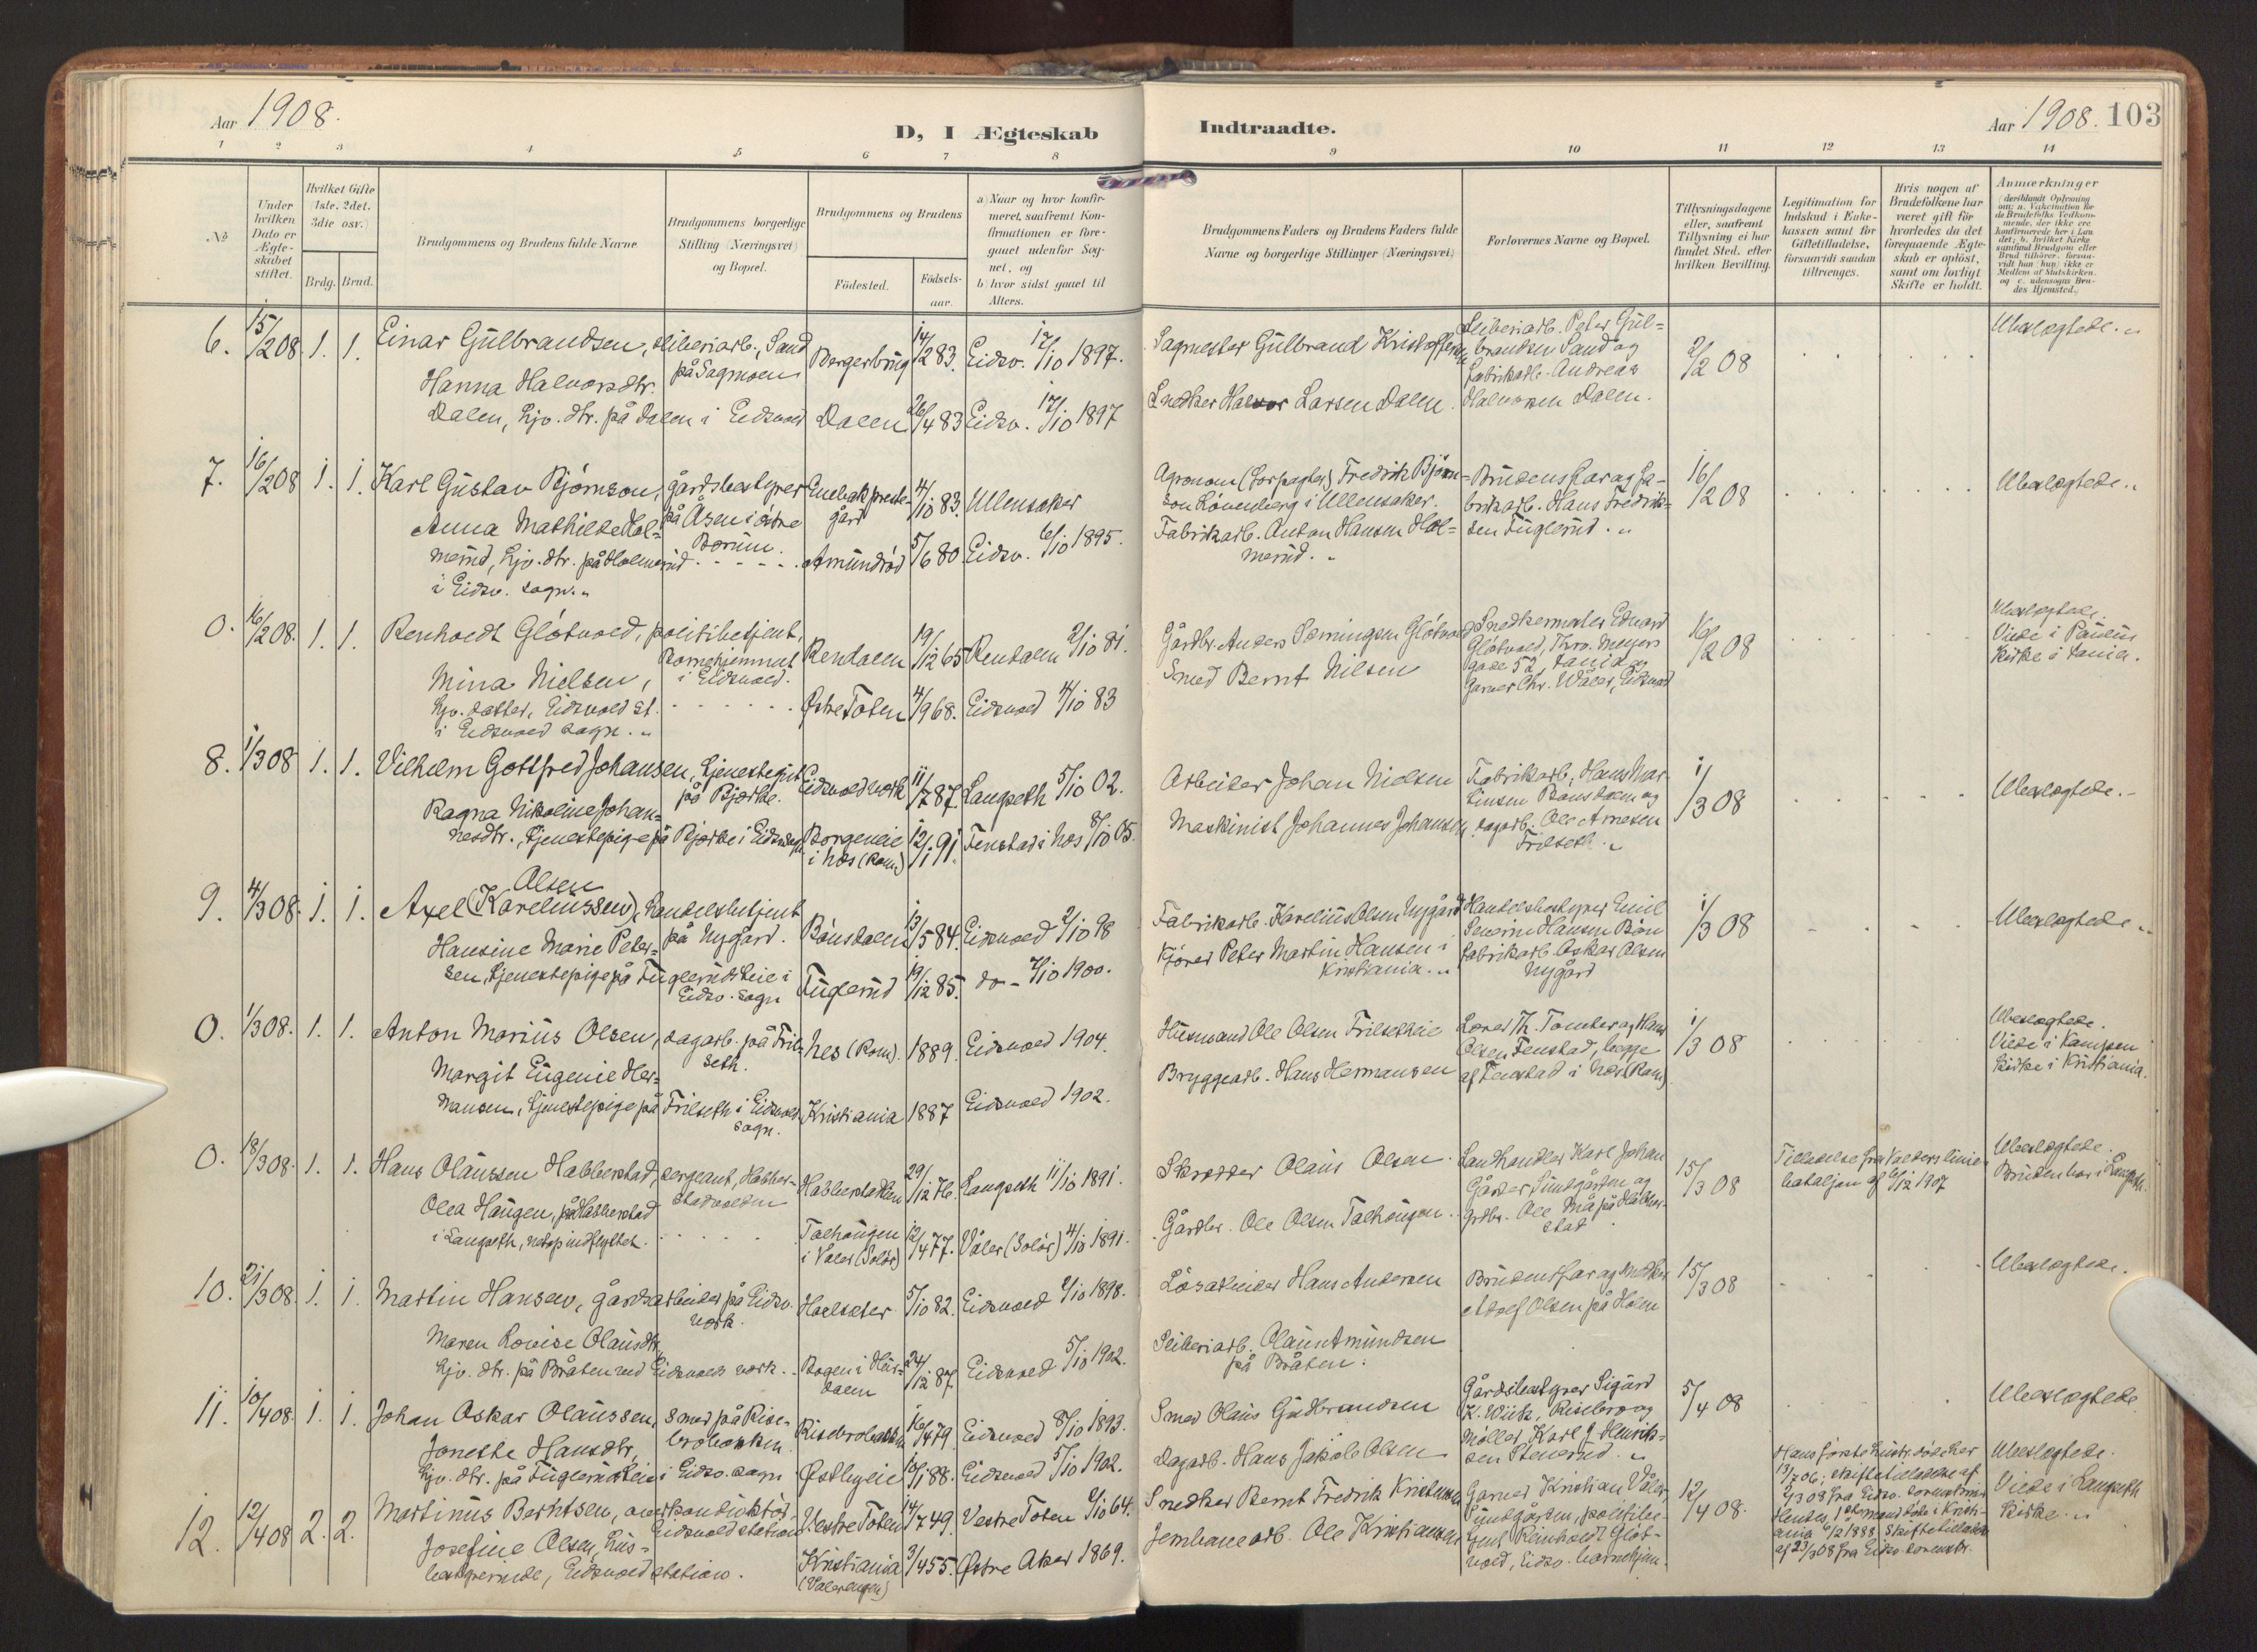 Aar 1908.
D, I Ægteskab
Indtraadte.
Aar 1908. 103
1 2 3 4 5 6 7 8 9 10 11 12 13 14
No
Under hvilken Dato er Ægteskabet stiftet.
Hvilket Gifte (1ste, 2det, 3die osv.)
Brdg. Brud.
Brudgommens og Brudens fulde Navne
Brudgommens borgerlige Stilling (Næringsvei) og Bopæl.
Brudgommens og Brudens
Födested. Födsels-aar.
a) Naar og hvor konfirmeret, saafremt Konfirmationen er foregaaet udenfor Sognet, og
b) hvor sidst gaaet til Alters.
Brudgommens Faders og Brudens Faders fulde Navne og borgerlige Stillinger (Næringsvei)
Forlovernes Navne og Bopæl.
Tillysningsdagene eller, saafremt Tillysning ei har fundet Sted, efter hvilken Bevilling.
Legitimation for Indskud i Enkekassen samt for Giftetilladelse, forsaavidt saadan tiltrænges.
Hvis nogen af Brudefolkene har været gift för hvorledes da det foregaaende Ægteskab er oplöst, samt om lovligt Skifte er holdt.
Anmærkninger
6. 15/2 08. 1. 1. Einar Gülbrandsen, sliberiarb., Sand på Sagmoen Borgerbrüg 14/2 83. Eidsv. 17/10 1897. Sagmester Gülbrand Kristoffersen Sliberiarb. Peter Gülbrandsen Sand og fabrikarb. Andreas Halvorsen Dalen. 2/2 08 Ubeslægtede.
Hanna Halvorsdtr. Dalen, hjv. dtr. på Dalen i Eidsvold Dalen 26/4 83 Eidsv. 17/10 1897 Snedker Halvor Larsen Dalen.
7. 16/2 08 1. 1. Karl Güstav Bjørnson, gårdsbestyrer på Åsen i østre Bærüm. Enebak prestegård 4/10 83. Ullensaker Agronom (Forpagter) Fredrik Bjørnson Løvenberg i Ullensaker. Brüdens far og fabrikarb. Hans Fredriksen Füglerüd. 16/2 08 Ubeslægtede.
Anna Mathilde Holmerüd, hjv. dtr. på Holmerüd i Eidsv. sogn. Amündrød 5/6 80 Eidsv. 6/10 1895. Fabrikarb. Anton Hansen Holmerüd.
0. 16/2 08. 1. 1. Renholdt Gløtvold, politibetjent, Barnehjemmet i Eidsvold. Rendalen 19/12 65 Rendalen 2/10 81. Gårdbr. Anders Sørningsen Gløtvold Snedkermester Edvard Gløtvold, Thrv. Meyers gade 52, Xania og Garver Chr. Wåler, Eidsvold 16/2 08 Ubeslægtede. Viede i Paülüs Kirke i Xania.
Mina Nielsen, hjv. datter, Eidsvold st. i Eidsvold sogn. Østre Toten 4/9 68. Eidsvold 4/10 83 Smed Bernt Nilsen
8. 1/3 08 1. 1. Vilhelm Gottfred Johansen, tjenestegüt på Bjørke. Eidsvold værk 11/7 87. Langseth 5/10 02. Arbeider Johan Nielsen Fabrikarb. Hans Martinsen Bønsdalen og dagarb. Ole Arnesen Frilseth. 1/3 08 Ubeslægtede.
Ragna Nikoline Johannesdtr., tjenestepige på Bjørke i Eidsv. sogn Borgereie i Nes (Rom.) 12/1 91. Fenstad i Nes 8/10 05. Maskinist Johannes Johansen
9. 4/3 08. 1. 1. Axel Olsen (Kareliüssen), handelsbetjent på Nygård. Bønsdalen 13/5 84. Eidsvold 2/10 98 Fabrikarb. Kareliüs Olsen Nygård Handelsbestyrer Emil Severin Hansen Bøn fabrikarb. Oskar Olsen Nygård 1/3 08 Ubeslægtede
Hansine Marie Petersen, tjenestepige på Füglerüdseie i Eidsv. sogn Füglerüd 19/12 85. do - 7/10 1900. Kjører Peter Martin Hansen i Kristiania.
0. 1/3 08. 1. 1. Anton Mariüs Olsen, dagarb. på Frilseth. Nes (Rom). 1889. Eidsvold 1904. Hüsmand Ole Olsen Frilsetheie Lærer Th. Tomter og Hans Olsen Fenstad, begge af Fenstad i Nes (Rom) 1/3 08 Ubeslægtede. Viede i Kampen Kirke i Kristiania.
Margit Eügenie Hermansen, tjenestepige på Frilseth i Eidsvold sogn. Kristiania 1887 Eidsvold 1902. Bryggearb. Hans Hermansen
0. 18/3 08. 1. 1. Hans Olaüssen Habberstad, sergeant, Habberstadvolden Habberstadten 29/12 76. Langseth 11/10 1891. Skrædder Olaüs Olsen. Landhandler Karl Johan Gårder Sündgården og grdbr. Ole Må på Habberstad 15/3 08 Tilladelse fra Valders liniebataljon af 6/12 1907 Ubeslægtede. Brüden bor i Langseth.
Olea Haügen, på Habberstad i Langseth, netop indflyttet. Talhaügen i Våler (Solør) 12/4 77. Våler (Solør) 4/10 1891. Gårdbr. Ole Olsen Talhaügen.
10. 21/3 08. 1. 1. Martin Hansen, gårdsarbeider på Eidsv. værk. Holtseter 5/10 82. Eidsvold 2/10 1898. Løsarbeider Hans Andersen Brüdens far og snedker Adolf Olsen på Holen 15/3 08 Ubeslægtede.
Maren Lovise Olaüsdtr, hjv. dtr. på Bråten ved Eidsvolds værk. Bogen i Hürdalen 24/12 87. Eidsvold 5/10 1902. Sliberiarb. Olaüs Amündsen på Bråten.
11. 10/4 08. 1. 1. Johan Oskar Olaüssen, smed på Risebrobakken. Risebrobakken 16/4 79. Eidsvold 8/10 1893. Smed Olaüs Güdbrandsen Gårdsbestyrer Sigürd K. Wiik, Risebro og Møller, Karl J. Henriksen Stenerüd. 5/4 08 Ubeslægtede.
Jonette Hansdtr, hjv. dtr. på Füglerüdseie i Eidsv. sogn Østbyeie 10/1 88. Eidsvold 5/10 1902. Dagarb. Hans Jakob Olsen
12. 12/4 08 2. 2. Martinüs Berntsen, Eidsvold station Vestre Toten 14/7 49. Vestre Toten 2/10 64. Snedker Bernt Fredrik Kristensen Garver Kristian Våler, Sündgården, politibetjent Reinholdt Gløtvold, Eidsv. barnehjem. 12/4 08. Hans første hüstr. døde her 13/7 06; skiftetilladelse af 2/3 08 fra Eidsv. sorenskriver Hendes 1ste mand døde i Kristiania 6/2 1888, skiftetilladelse af 23/3 08 fra Eidsv. sorenskr. Ubeslægtede. Viede i Langseth Kirke.
Josefine Olsen, hüsbestyrerinde, Eidsvold station. Kristiania (Vålerengen) 3/4 55. Østre Aker 1869. Jernbanearb. Ole Kristiansen